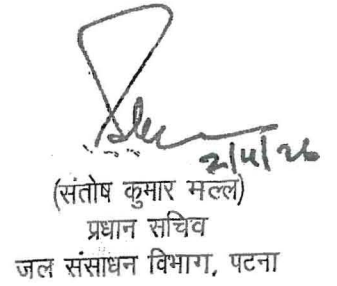 2/4/26
(संतोष कुमार मल्ल)
प्रधान सचिव
जल संसाधन विभाग, पटना